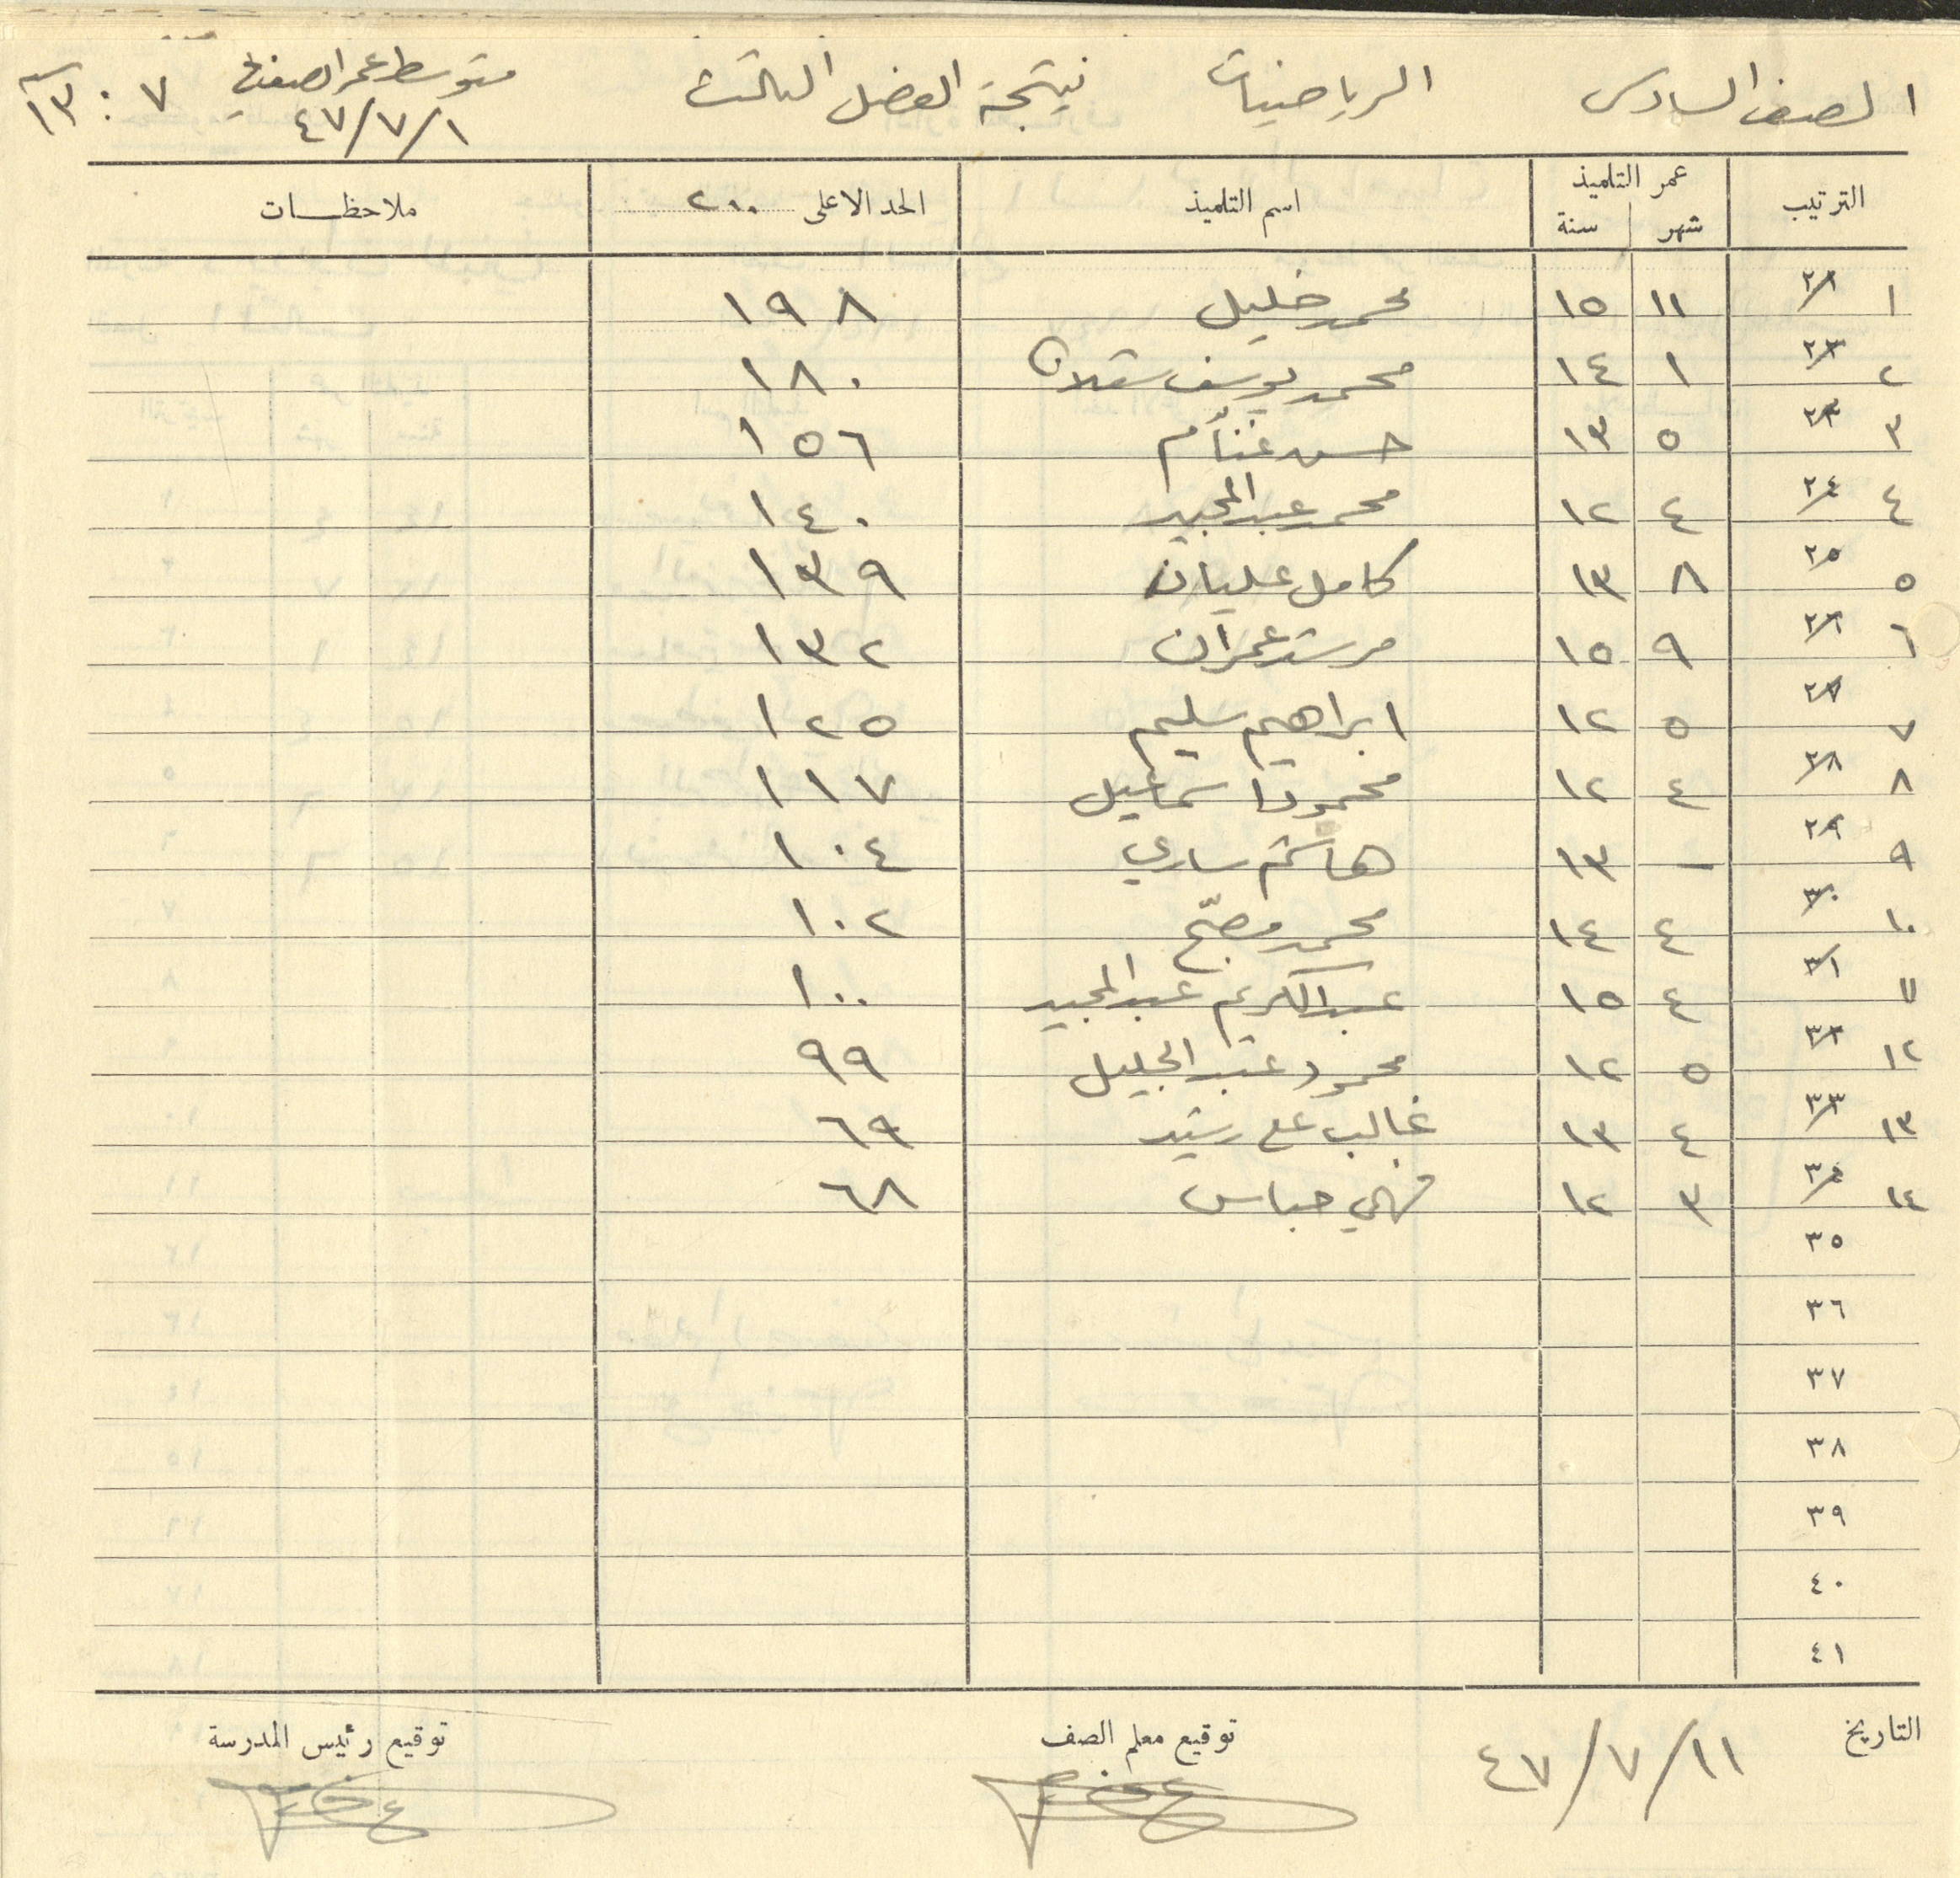 الصف السادس الرياضيات نتيجة الفصل الثالث متوسط عمر الصف في ١/٧/٤٧ ٧ : ١٣ سنة
الترتيب عمر التلميذ شهر سنة اسم التلميذ الحد الاعلى ٢٠٠ ملاحظات
١ ١١ ١٥ محمد خليل ١٩٨
٢ ١ ١٤ محمد يوسف سقلان ١٨٠
٣ ٥ ١٣ حسن غنّام ١٥٦
٤ ٤ ١٢ محمد عبد المجيد ١٤٠
٥ ٨ ١٣ كامل عليان ١٣٩
٦ ٩ ١٥ مرشد عمران ١٣٢
٧ ٥ ١٢ ابراهيم سليم ١٢٥
٨ ٤ ١٢ محمود اسماعيل ١١٧
٩ – ١٣ هاشم ساري ١٠٤
١٠ ٤ ١٤ محمد مصبّح ١٠٢
١١ ٤ ١٥ عبد الكريم عبد المجيد ١٠٠
١٢ ٥ ١٢ محمود عبد الجليل ٩٩
١٣ ٤ ١٣ غالب علي رشيد ٦٩
١٤ ٣ ١٢ فهمي عباس ٦٨
٣٥
٣٦
٣٧
٣٨
٣٩
٤٠
٤١
التاريخ ١١/٧/٤٧ توقيع معلم الصف توقيع رئيس المدرسة